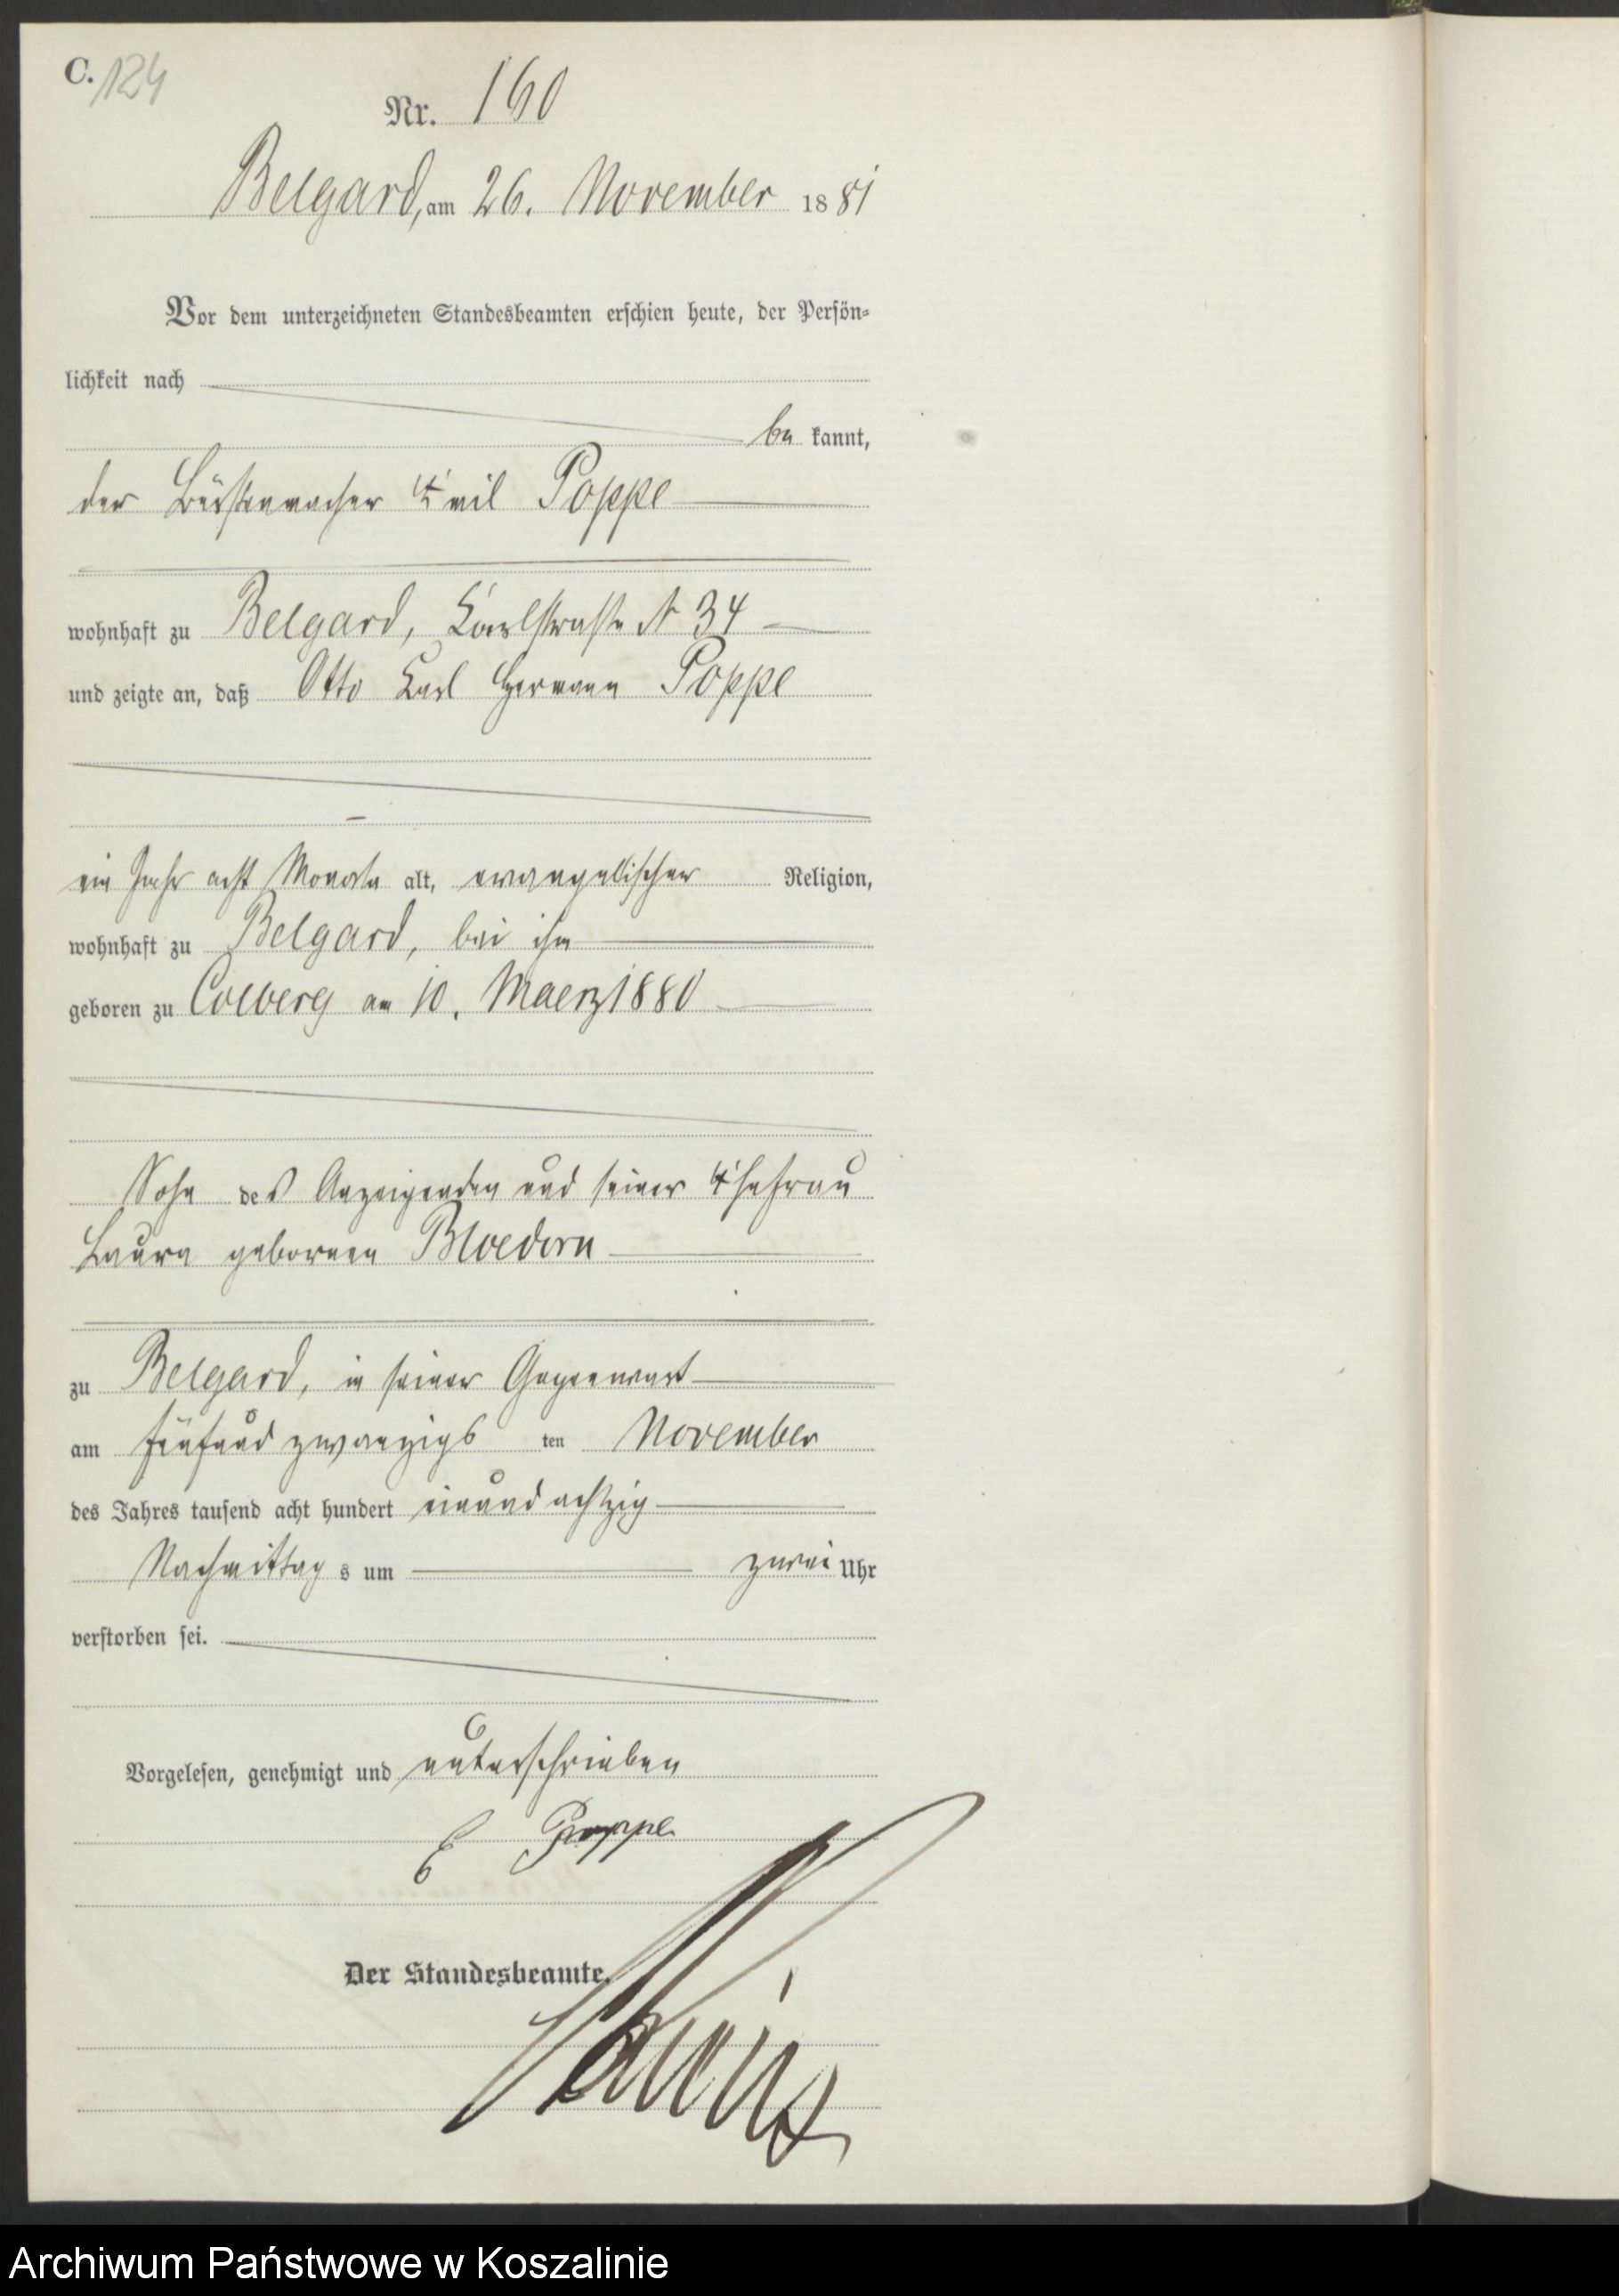 C. 124
Nr. 160
Belgard, am 26. November 1881
Vor dem unterzeichneten Standesbeamten erschien heute, der Persön-
lichkeit nach
be kannt,
der Bürstenmacher Emil Poppe
wohnhaft zu Belgard, Karlstraße № 34
und zeigte an, daß Otto Karl Hermann Poppe
ein Jahr acht Monate alt, evangelischer Religion,
wohnhaft zu Belgard, bei ihm
geboren zu Colberg am 10. Maerz 1880
Sohn des Anzeigenden und seiner Ehefrau
Laura gebornen Bloedorn
zu Belgard, in seiner Gegenwart
am fünfundzwanzigs ten November
des Jahres tausend acht hundert einundachtzig
Nachmittag s um zwei Uhr
verstorben sei.
Vorgelesen, genehmigt und unterschrieben
E Poppe
Der Standesbeamte.
Archiwum Państwowe w Koszalinie